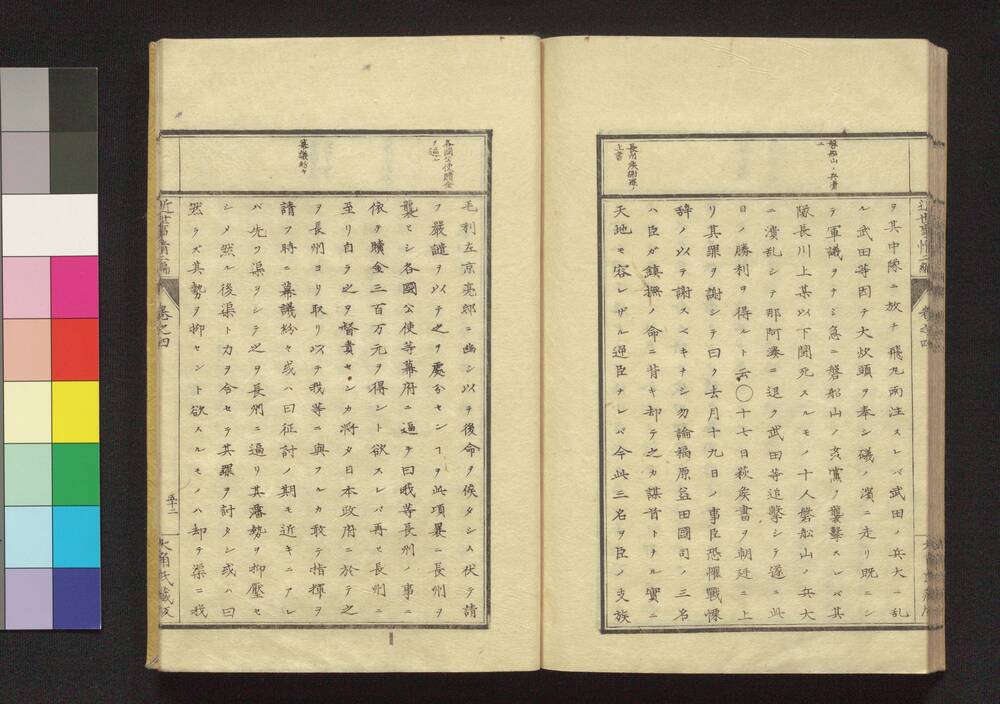 磐船山ノ兵潰
ユ
長州侯謝罪ノ
上書
ヲ其中隊ニ放チ飛丸雨注スレバ武田ノ兵大ニ乱
ル武田等因テ大炊頭ヲ奉シ磯ノ濱ニ走リ既ニシ
テ軍議ヲナシ急ニ磐船山ノ玄黨ノ襲撃スレバ其
隊長川上某以下鬪死スルモノ十人磐船山ノ兵大
ニ潰乱シテ那阿湊ニ退ク武田等追撃シテ遂ニ此
日ノ勝利ヲ得ルト云◯十七日萩矦書ヲ朝廷ニ上
リ其罪ヲ謝シテ曰ク去月十九日ノ事臣恐懼戰慄
辞ノ以テ謝スベキナシ勿論福原益田國司ノ三名
ハ臣ガ鎮撫ノ命ニ背キ却テ之カ謀首トナル實ニ
天地モ容レザル逆臣ナレバ今此三名ヲ臣ノ支族
近世事情二編
卷之四
各國公使贖金
ヲ逼ル
幕議紛々
毛利左京亮邸ニ幽シ以テ後命ヲ俟タシム伏テ請
フ嚴譴ヲ以テ之ヲ處分センヿヲ此項曩ニ長州ヲ
襲ヒシ各國公使等幕府ニ逼テ曰我等長州ノ事ニ
依テ贖金三百万元ヲ得ント欲スレバ再ヒ長州ニ
至リ自ラ之ヲ督責センカ將タ日本政府ニ於テ之
ヲ長州ヨリ取リ以テ我等ニ與フルカ敢テ指揮ヲ
請フ時ニ幕議紛々或ハ曰征討ノ期モ近キニアレ
バ先ツ渠ヲシテ之ヲ長州ニ逼リ其藩勢ヲ抑壓セ
シメ然ル後渠ト力ヲ合セテ其罪ヲ討タン或ハ曰
然ラズ其勢ヲ抑セント欲スルモノハ却テ渠ニ我
近世事情二編
卷之四
五十二
大角氏藏版